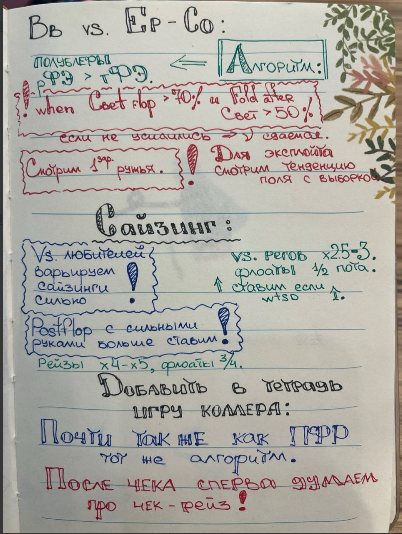 BB vs. EP-CO:
Алгоритм:
полублефы
рФЭ > тФЭ.
! when Cbet flop > 70% и Fold after
Cbet > 50%
если не усилились → сдаемся.
Смотрим 1 ур. ружья. !
Для эксплойта
смотрим тенденцию
поля с выборкой
Сайзинг:
Vs. любителей
варьируем
сайзинги
сильно !
vs. регов x2.5-3.
флоаты 1/2 пота.
↑ ставим если
wtsd ↑.
Postflop с сильными
руками больше ставим !
Рейзы x4-x5, флоаты 3/4.
Добавить в тетрадь
игру коллера:
Почти так же как ПФР
тот же алгоритм.
После чека сперва думаем
про чек-рейз !